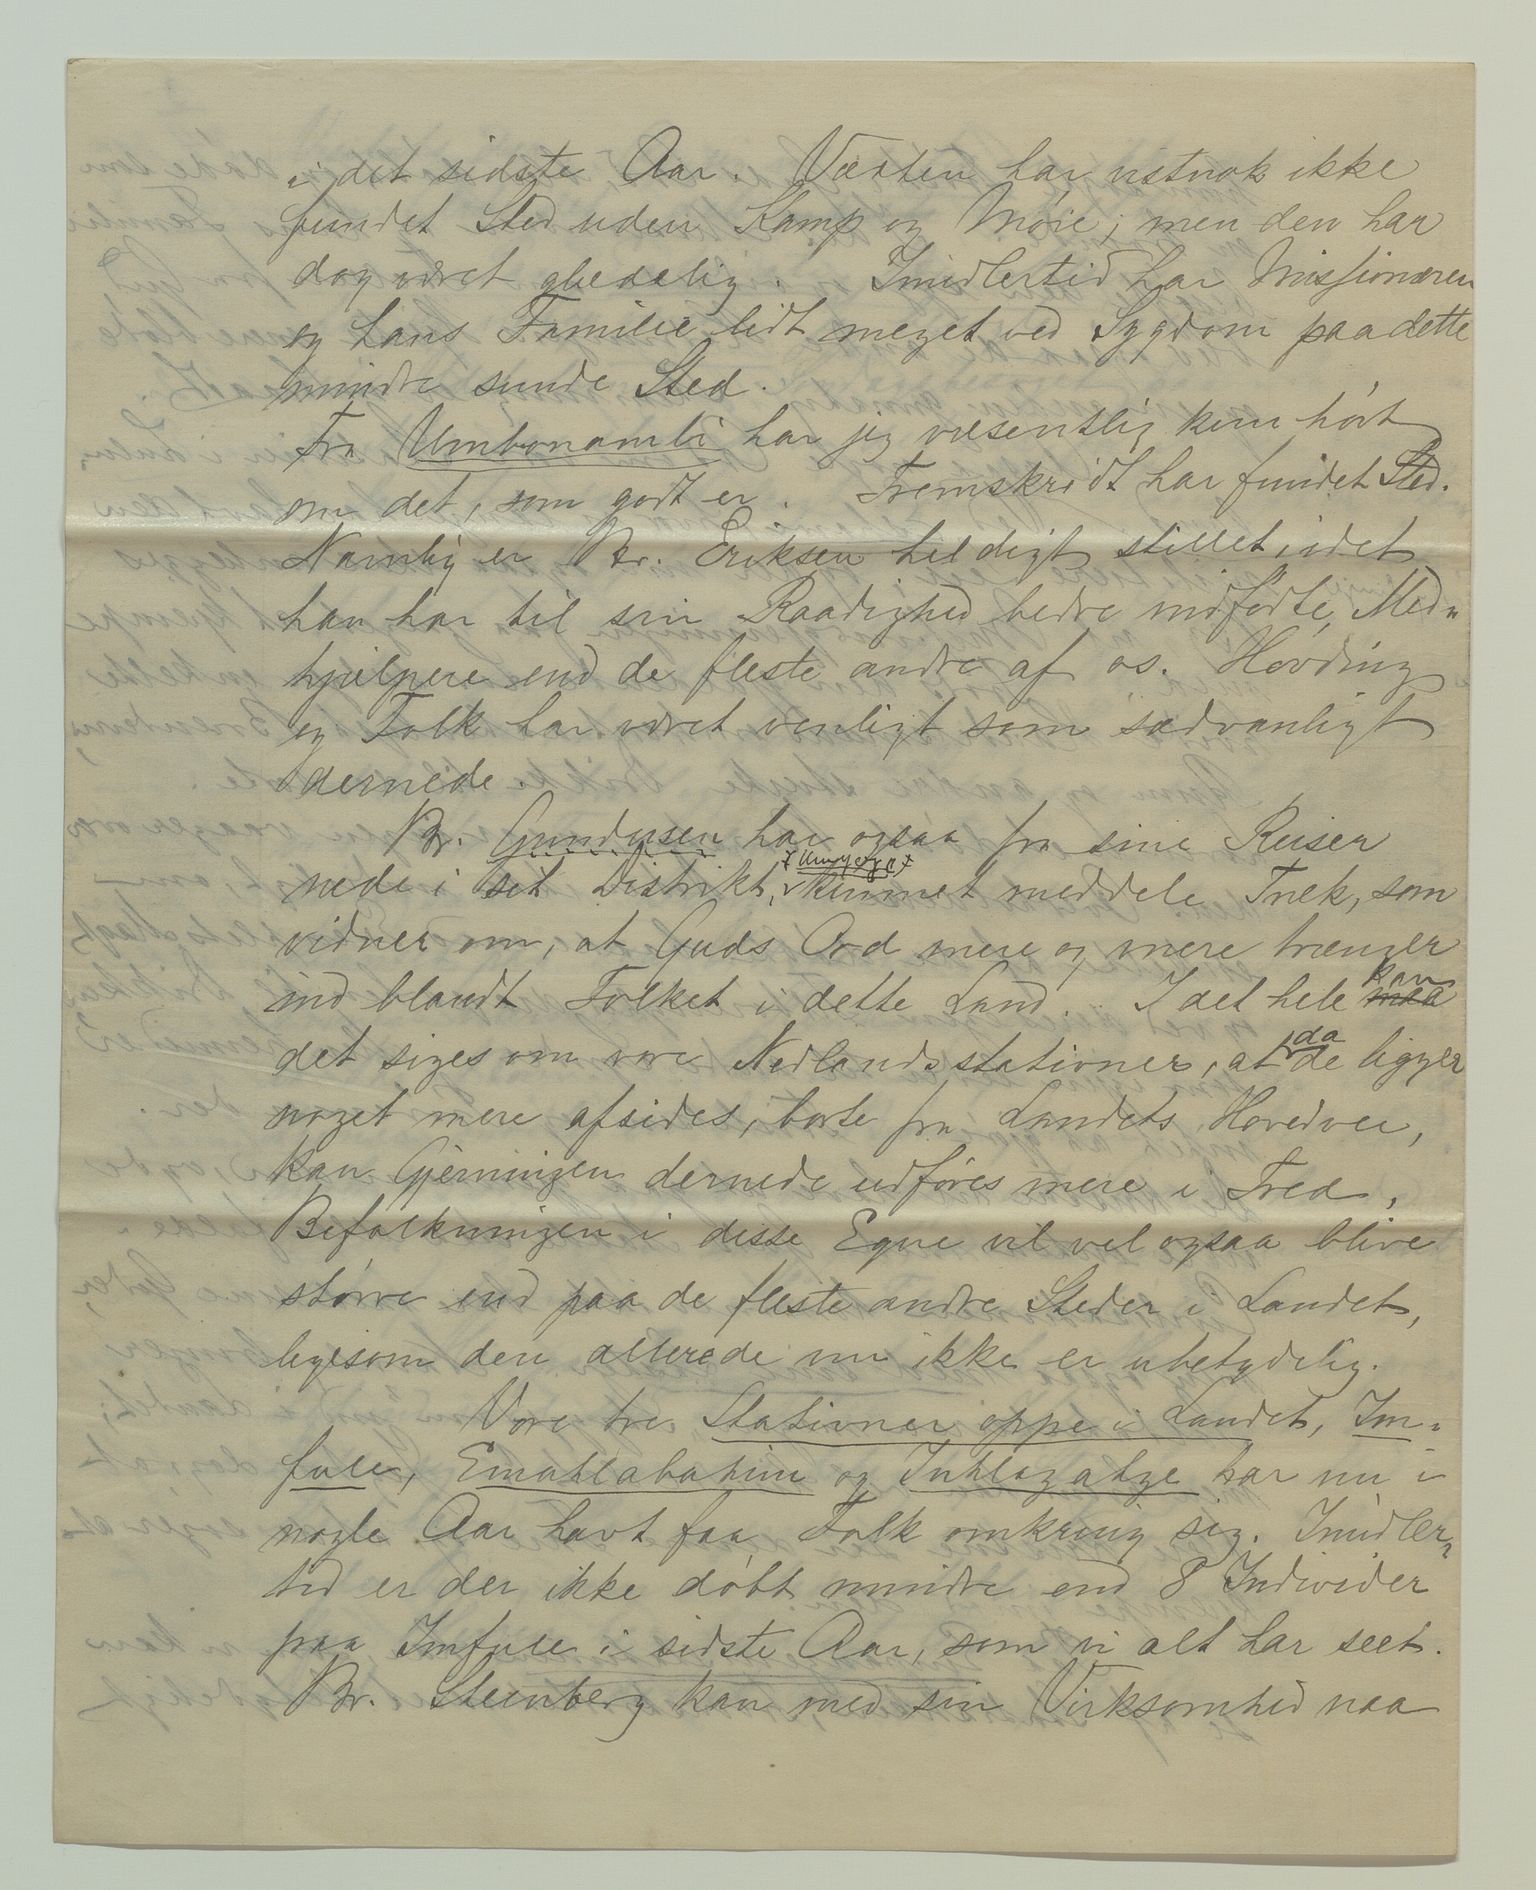 i det sidste Aar. Væxten har vistnok ikke
fundet Sted uden Kamp og Møie; men den har
dog været glædelig. Imidlertid har Missionæren
og hans Familie lidt meget ved Sygdom paa dette
mindre sunde Sted.
Fra Umbonambi har jeg væsentlig kun hørt
om det, som godt er. Fremskridt har fundet Sted.
Navnlig er Br. Eriksen heldigt stillet, idet
han har til sin Raadighed bedre indfødte Med-
hjælpere end de fleste andre af os. Høvding
og Folk har været venligt som sædvanligt
dernede.
Br. Gundersen har ogsaa fra sine Reiser
nede i sit Distrikt, kunnet meddele Træk, som
vidner om, at Guds Ord mere og mere trænger
ind blandt Folket i dette Land. I det hele maa kan
det siges om vore Nedlandsstationer, at da de ligger
noget mere afsides, borte fra Landets Hovedvei,
kan Gjerningen dernede udføres mere i Fred,
Befolkningen i disse Egne vil vel ogsaa blive
større end paa de fleste andre Steder i Landet,
ligesom den allerede nu ikke er ubetydelig.
Vore tre Stationer oppe i Landet, Im-
fule, Emahlabatini og Inhlazatye har nu i
nogle Aar havt faa Folk omkring sig. Imidler-
tid er der ikke døbt mindre end 8 Individer
paa Imfule i sidste Aar, som vi alt har seet.
Br. Steenberg kan med sin Virksomhed naa